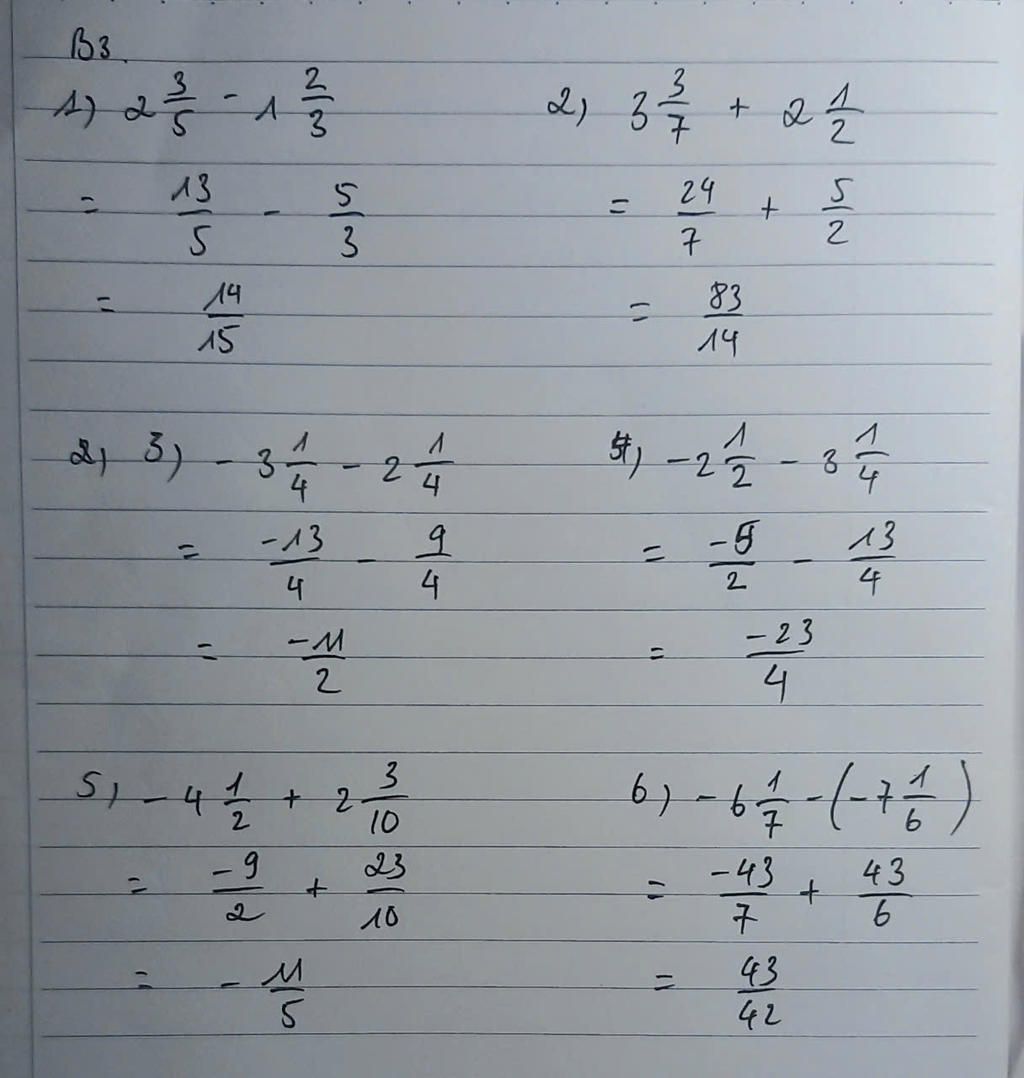 B3.
1) 2 3/5 - 1 2/3
= 13/5 - 5/3
= 14/15
2) 3 3/7 + 2 1/2
= 24/7 + 5/2
= 83/14
2) 3) - 3 1/4 - 2 1/4
= -13/4 - 9/4
= -11/2
4) - 2 1/2 - 3 1/4
= -5/2 - 13/4
= -23/4
5) - 4 1/2 + 2 3/10
= -9/2 + 23/10
= - 11/5
6) - 6 1/7 - (-7 1/6)
= -43/7 + 43/6
= 43/42